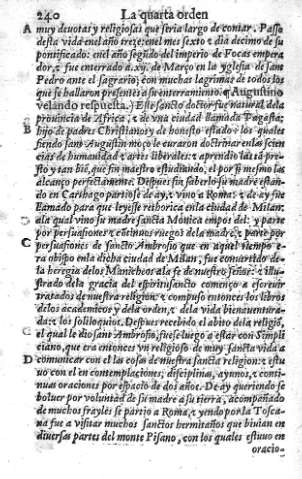 240 La quarta orden
A muy deuotas y religiosas que seria largo de contar. Passo
desta vida en el año treze: en el mes sexto z dia decimo de su
pontificado: en el año segudo del imperio de Focas empera
dor, z fue enterrado a. xij. de Março en la yglesia de san
Pedro ante el sagrario; con muchas lagrimas de todos los
que se hallaron presentes a su enterramiento. Augustino
velando respuesta.) Este sancto doctor fue natural dela
prouincia de Africa, z de vna ciudad llamada Tagasta;
B hijo de padres Christianos y de honesto estado z los quales
siendo san Augustin moço le curaron doctrinar en las scien
cias de humanidad z artes liberales: z aprendio las tã pre-
sto y tan biẽ, que sin maestro estudiando, el por si mesmo las
alcanço perfectamente. Despues sin saberlo su madre estan-
do en Carthago partiose de ay, z vino a Roma, z de ay fue
llamado para que leyesse rethorica en la ciudad de Milan:
ala qual vino su madre sancta Monica empos del: y parte
por persuasiones z cõtinuos ruegos dela madre, z parte por
C persuasiones de sancto Ambrosio que en aquel tiempo e-
ra obispo en la dicha ciudad de Milan, fue conuertido de-
la heregia delos Manicheos ala fe de nuestro señor: z illu-
strado dela gracia del espiritu sancto començo a escreuir
tratados de nuestra religion: z compuso entonces los libros
delos academicos y dela orden, z dela vida bienauentura-
da: z los soliloquios. Despues recebido el abito dela religiõ,
el qual le dio sant Ambrosio, fuesse luego a estar con Simpli
ciano, que era entonces vn religioso de muy sancta vida a
D comunicar con el las cosas de nuestra sancta religion: z estu
uo con el en contemplaciones, disciplinas, ayunos, z conti-
nuas oraciones por espacio de dos años. De ay queriendo se
boluer por voluntad de su madre a su tierra, acompañado
de muchos frayles se partio a Roma, z yendo por la Tosca-
na fue a visitar muchos sanctos hermitaños que biuian en
diuersas partes del monte Pisano, con los quales estuuo en
oracio-